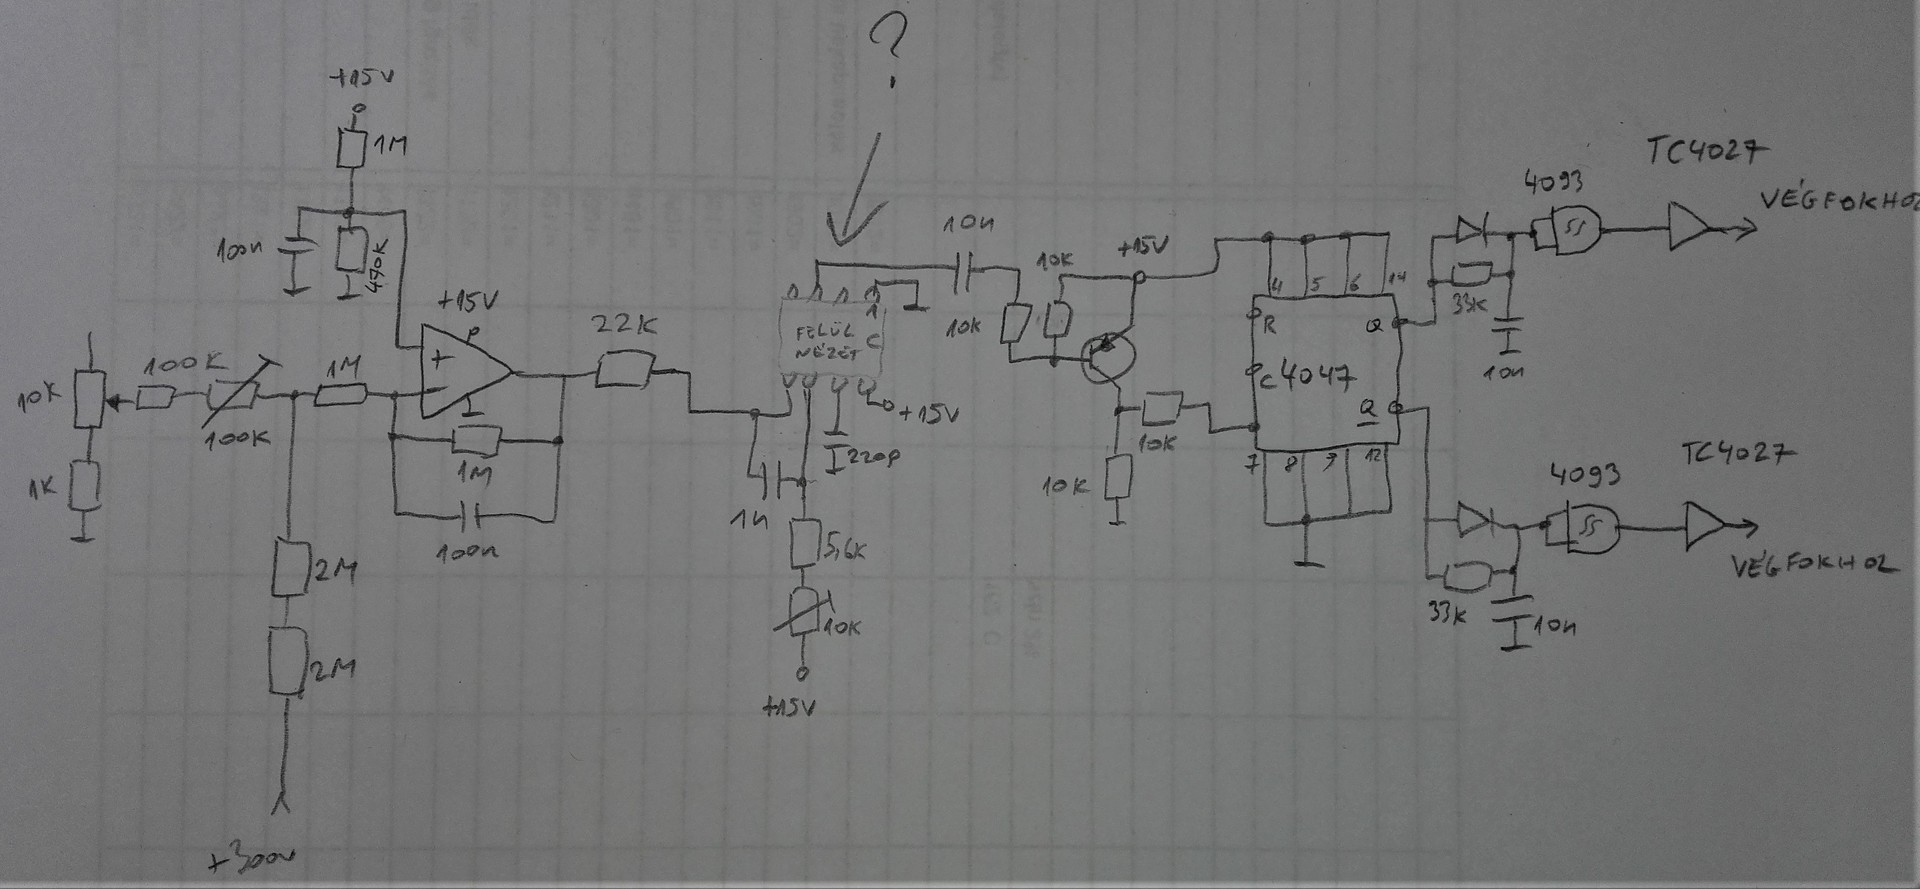 ?
+15V
1M
100n
470K
+15V
+
-
10K
100K
100K
1M
1K
1M
100n
2M
2M
+300V
22K
FELÜL
NÉZET
C
1
+15V
220p
1n
5,6K
10K
+15V
10n
10K
10K
+15V
10K
10K
4 5 6 14
R
Q
C 4047
Q
7 8 9 12
33K
10n
4093
TC4027
VÉGFOKHOZ
33K
10n
4093
TC4027
VÉGFOKHOZ